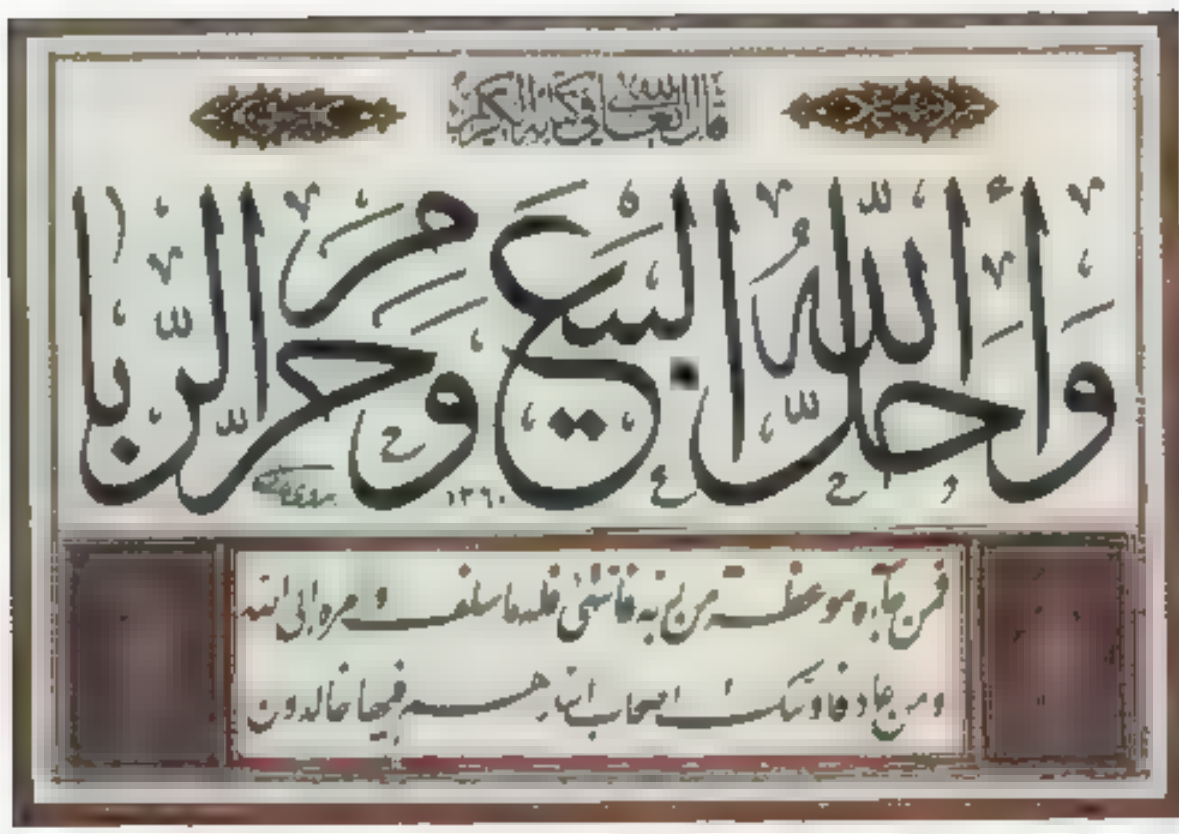 قال الله تعالى في كتابه الكريم
وَأَحَلَّ اللّٰهُ الْبَيْعَ وَحَرَّمَ الرِّبَا
١٣٦٠
فمن جآءه موعظة من ربه فانتهى فله ما سلف وامره الى الله
ومن عاد فاولئك اصحاب النار هم فيها خالدون